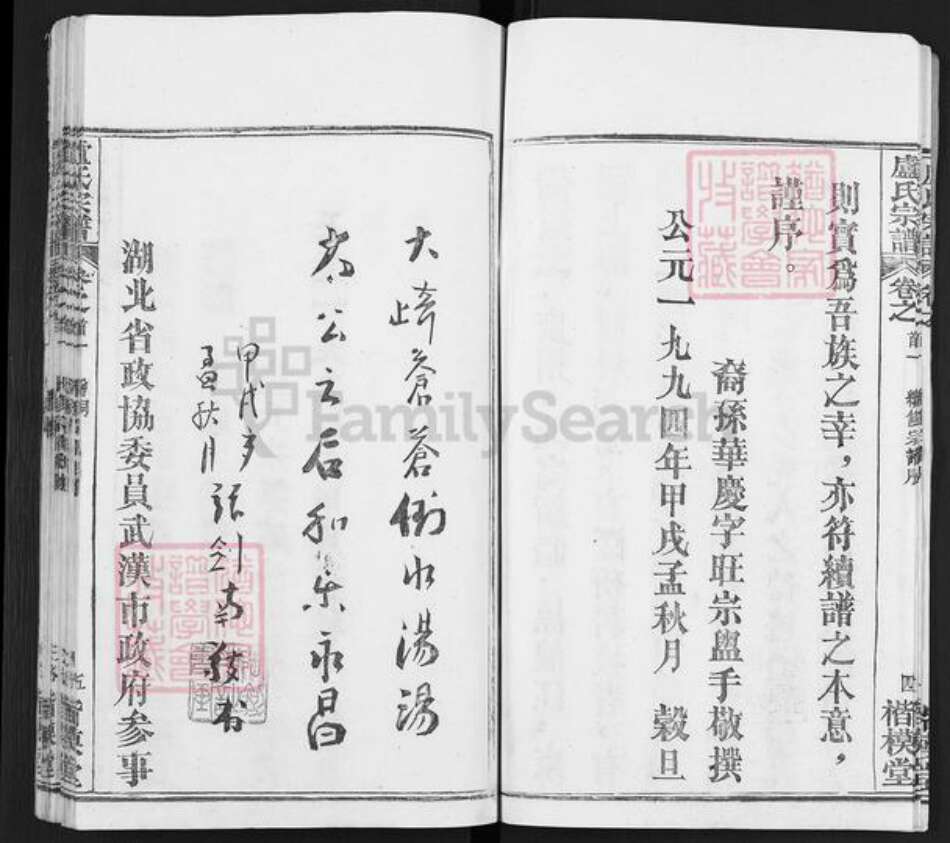 盧氏宗譜
卷之首一
續修宗譜序
四
楷模堂
則實爲吾族之幸，亦符續譜之本意，
謹序。
裔孫華慶字旺宗盥手敬撰
公元一九九四年甲戌孟秋月 穀旦
大崎蒼蒼倒水湯湯
公之后和樂永昌
甲戌
孟秋月
湖北省政協委員武漢市政府參事
FamilySearch